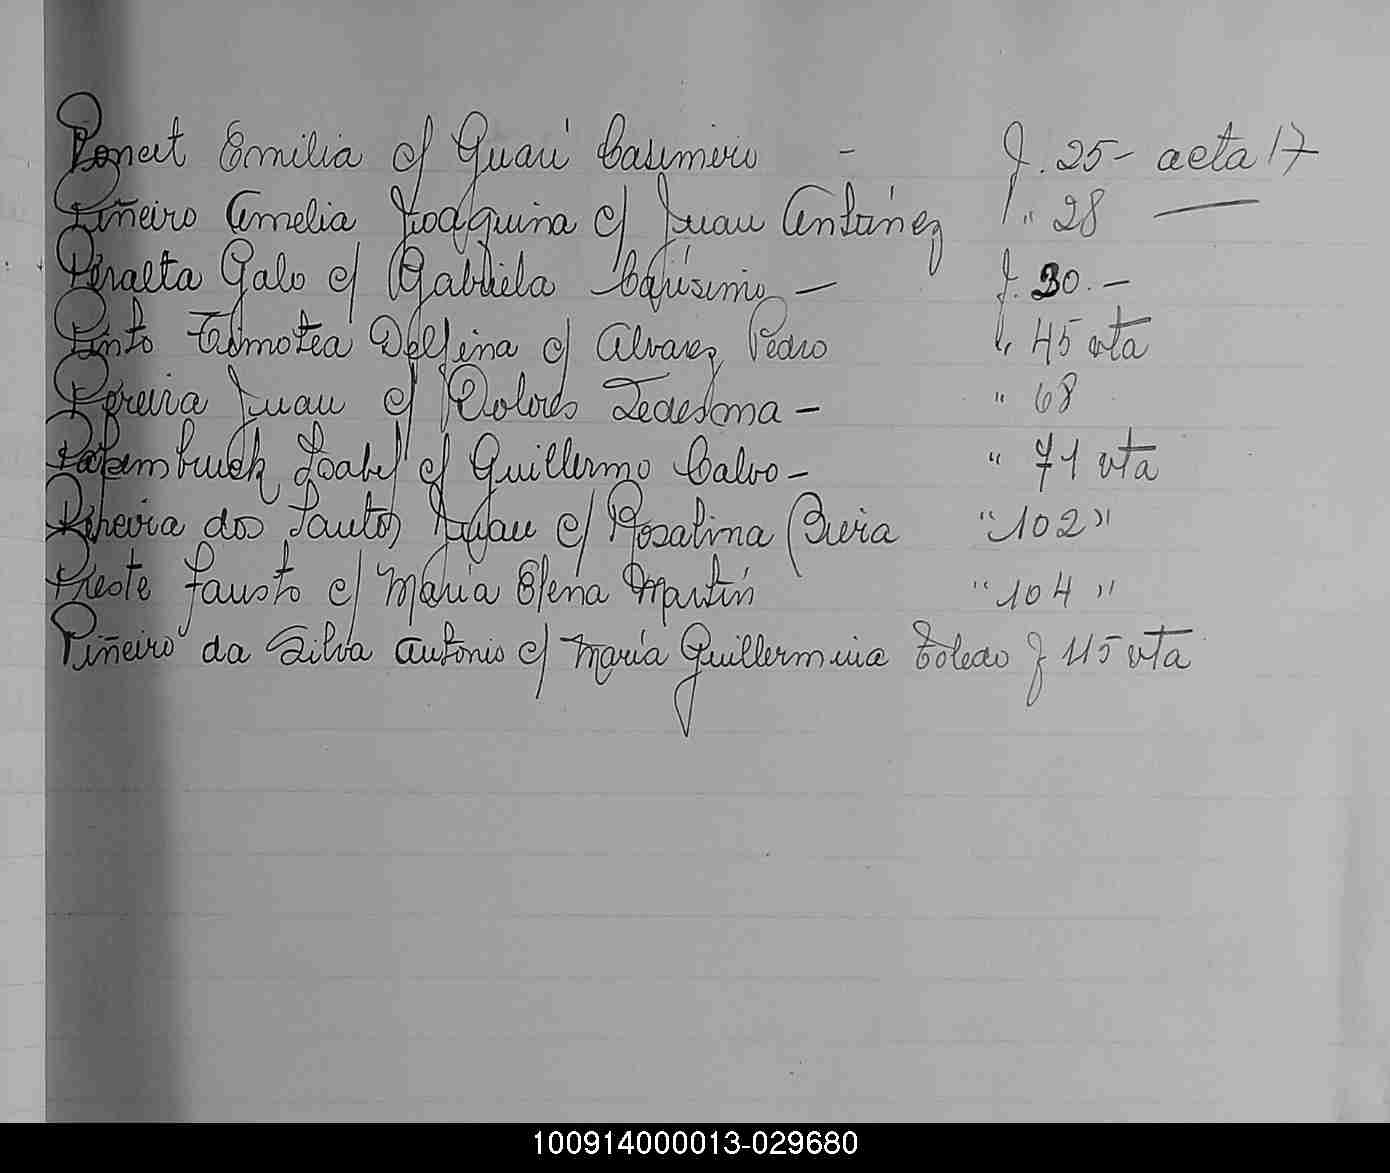 Poncet Emilia c/ Guarí Casimiro - f. 25 - acta 17
Piñeiro Amelia Joaquina c/ Juan Antúnez " 28 —
Peralta Galo c/ Gabriela — f. 30. —
Pinto Timotea Delfina c/ Alvarez Pedro " 45 vta
Pereira Juan c/ Dolores Ledesma — " 68
Isabel c/ Guillermo Calvo — " 71 vta
Pereira dos Santos Juan c/ Rosalina " 102 "
Preste Fausto c/ María Elena Martín " 104 "
Piñeiro da Silva Antonio c/ María Guillermina Toledo f 115 vta
100914000013-029680